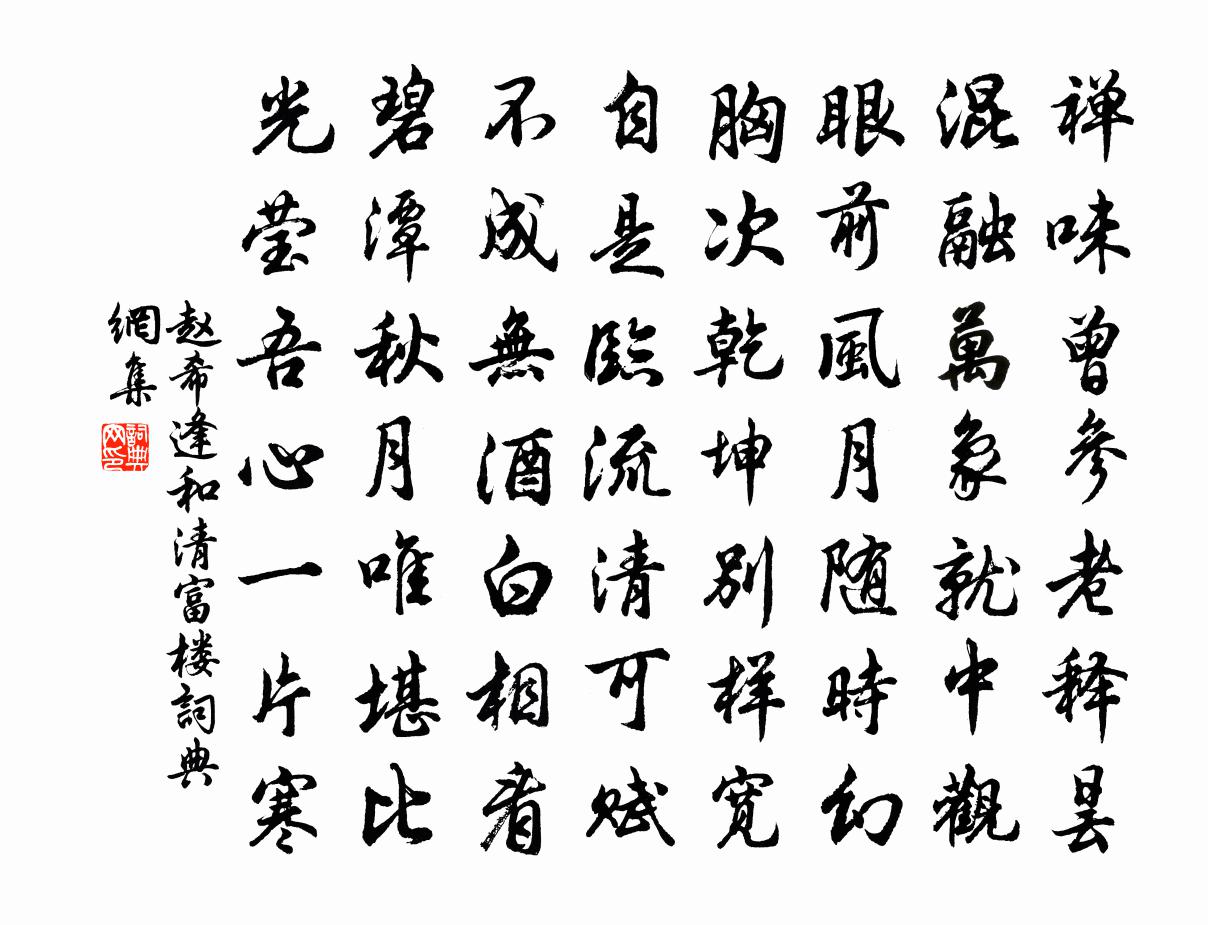 禅味曾參老释昙
混融萬象就中觀
眼前風月随時幻
胸次乾坤别样宽
自是臨流清可赋
不成無酒白相看
碧潭秋月唯堪比
光莹吾心一片寒
赵希逢和清富楼詞典
網集
詞典
网印